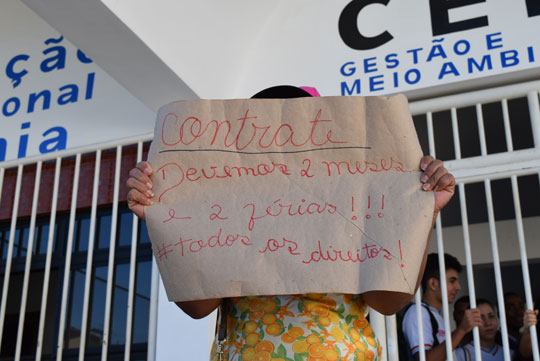 CE
GESTÃO E
MEIO AMBI
ação
onal
ia
Contrate
Devemos 2 meses
e 2 férias!!!
#todos os direitos!